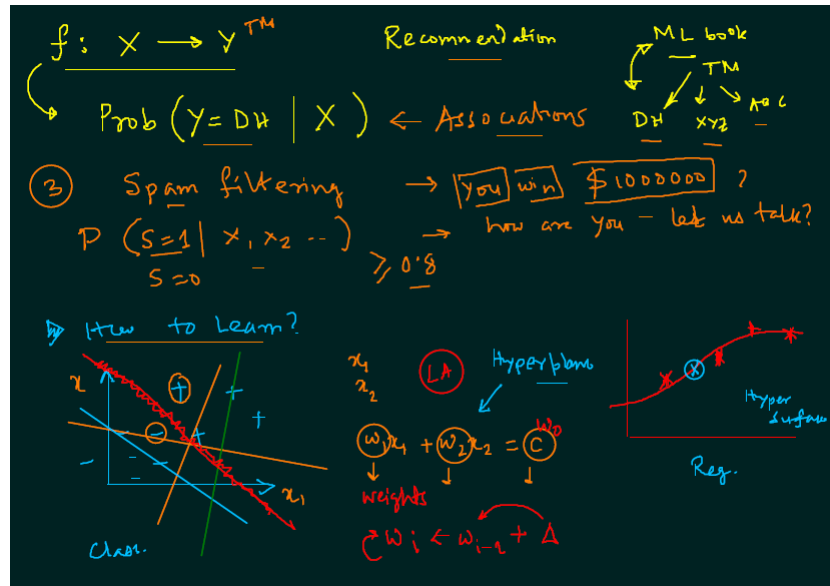 f: X → Y TM
Recommendation
ML book
TM
DH XYZ ABC
Prob (Y = DH | X) ← Associations
③ Spam filtering → you win $1000000 ?
P (S=1 | x1 x2 --) → how are you - let us talk?
S=0 ≥ 0.8
How to Learn?
x1
x2
LA
Hyperplane
x
+ + +
- +
- - - -
x1
w1x1 + w2x2 = C w0
weights
wi ← wi-1 + Δ
Class.
x
Hyper
surface
Reg.